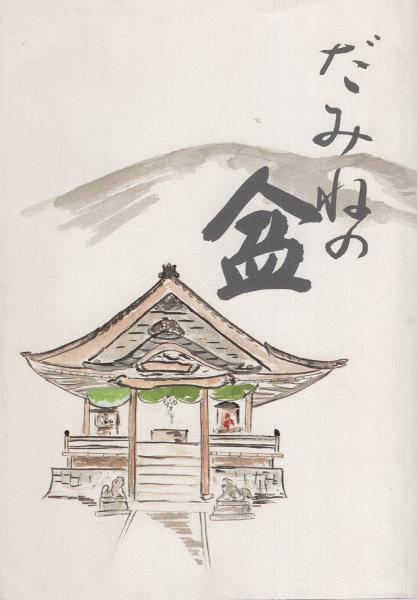 だみねの
盆